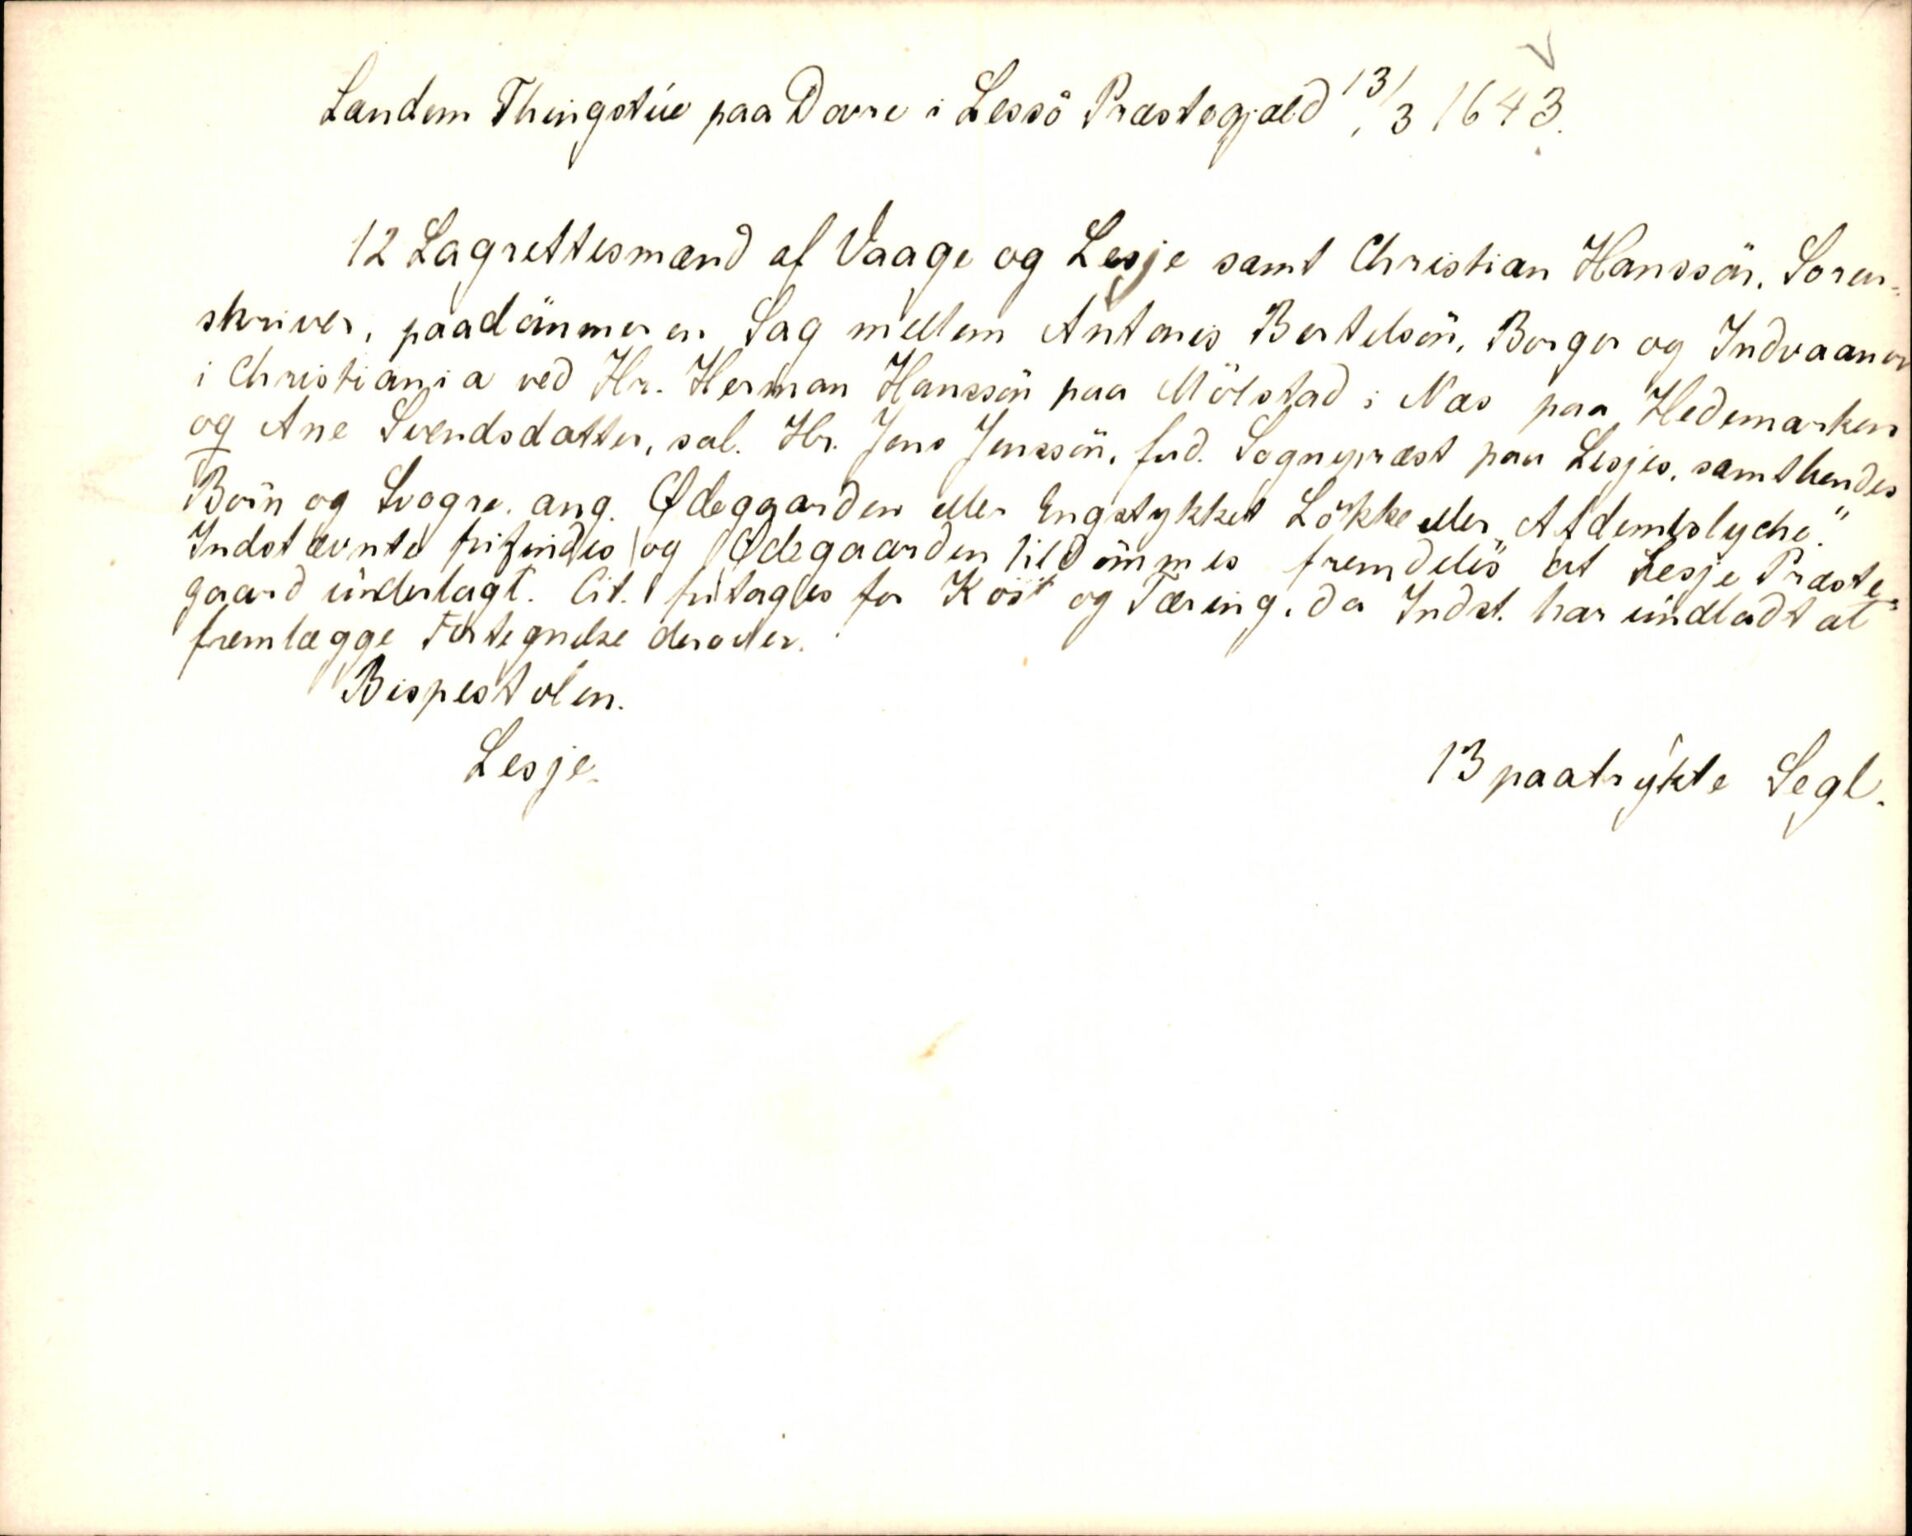 Landem Thingstue paa Dovre i Lessö Præstegjæld 13/3 1643.
12 Lagrettesmænd af Vaage og Lesje samt Christian Hanssön, Soren-
skriver, paadömmer en Sag mellem Antonis Bertelsön, Borger og Indvaaner
i Christiania ved Hr. Herman Hanssön paa Mölstad i Næs paa Hedemarken
og Ane Svendsdatter, sal. Hr. Jens Jenssön, fud. Sognepræst paa Lesjes, samt hendes
Börn og Svogre. ang. Ødegaarden eller Engstykket Lökke eller "Afdembslyche."
Indstævnte frifindes og Ødegaarden tildömmes fremdeles at Lesje Præste-
gaard underlagt. Cit. fritages for Kost og Tæring, da Indst. har undladt at
fremlægge Fortegnelse derover.
Bispestolen.
Lesje.
13 paatrykte Segl.